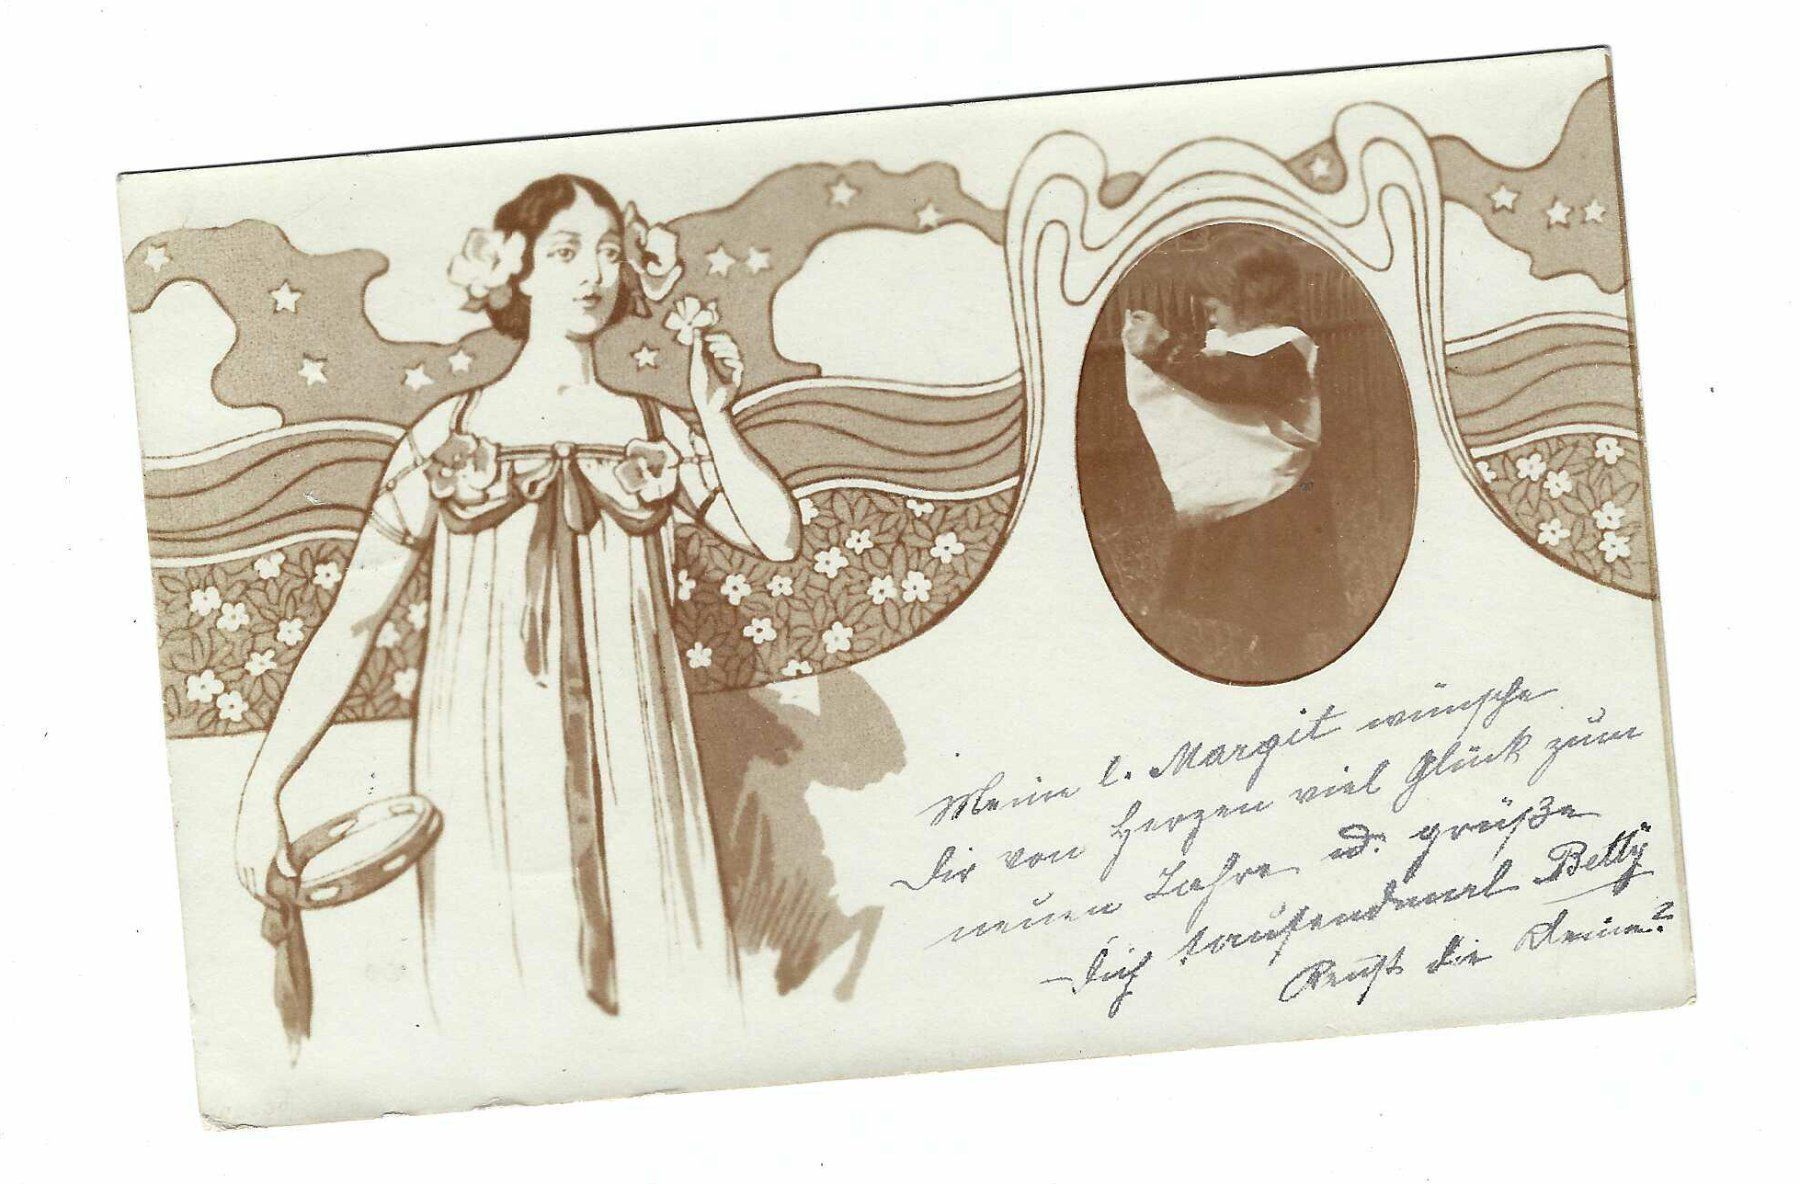 Meine l. Margit wünsche
Dir von Herzen viel Glück zum
neuen Jahre u. grüße
Dich tausendmal Betty
die Kleine?